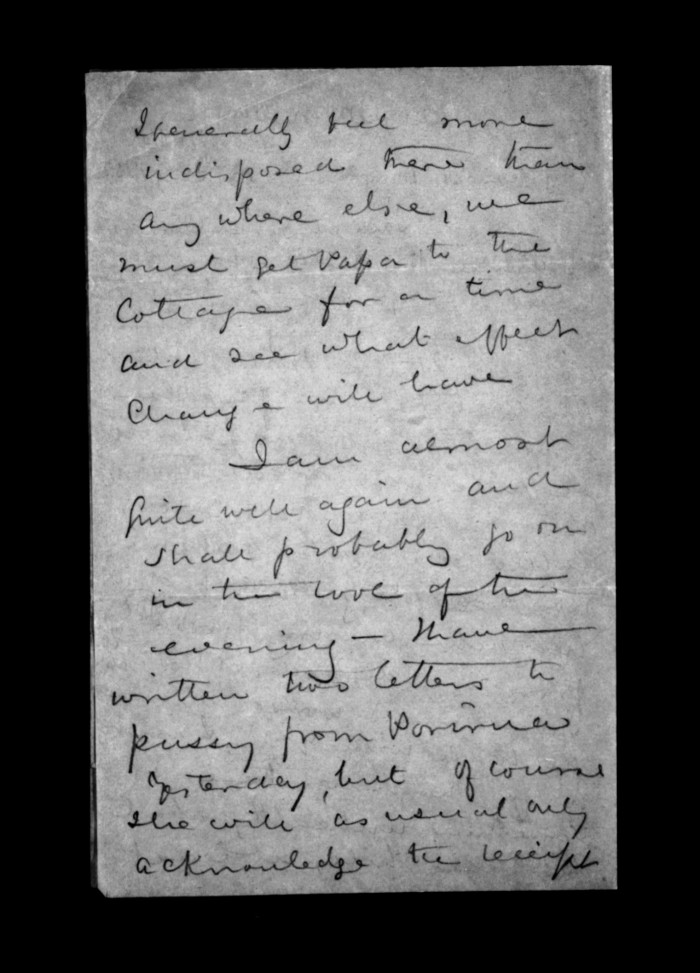 I generally feel more
indisposed there than
any where else, we
must get Papa to the
Cottage for a time
and see what effect
Change will have
I am almost
quite well again and
shall probably go on
in the cool of the
evening – I have
written two letters to
pussy from Porirua
Yesterday, but of course
she will as usual only
acknowledge the receipt